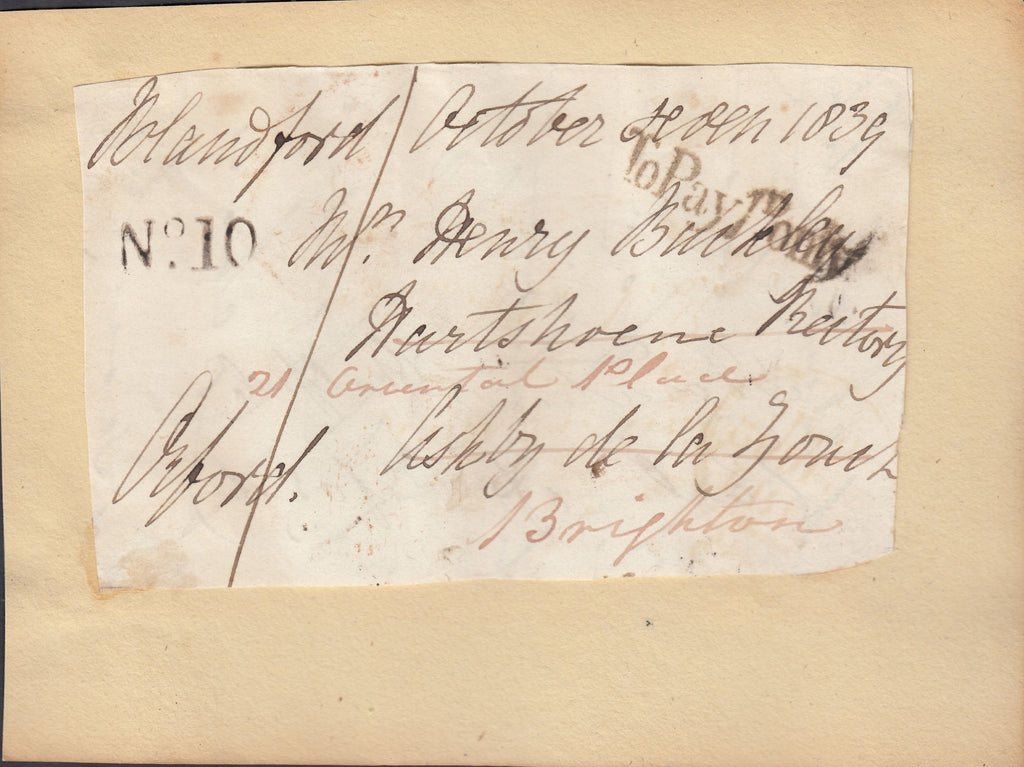 Blandford October seven 1839
To Pay 1d only
No. 10 Mr. Henry Buckley
Hartshorne Rectory
21 Oriental Place
Ashby de la Zouch
Oxford.
Brighton